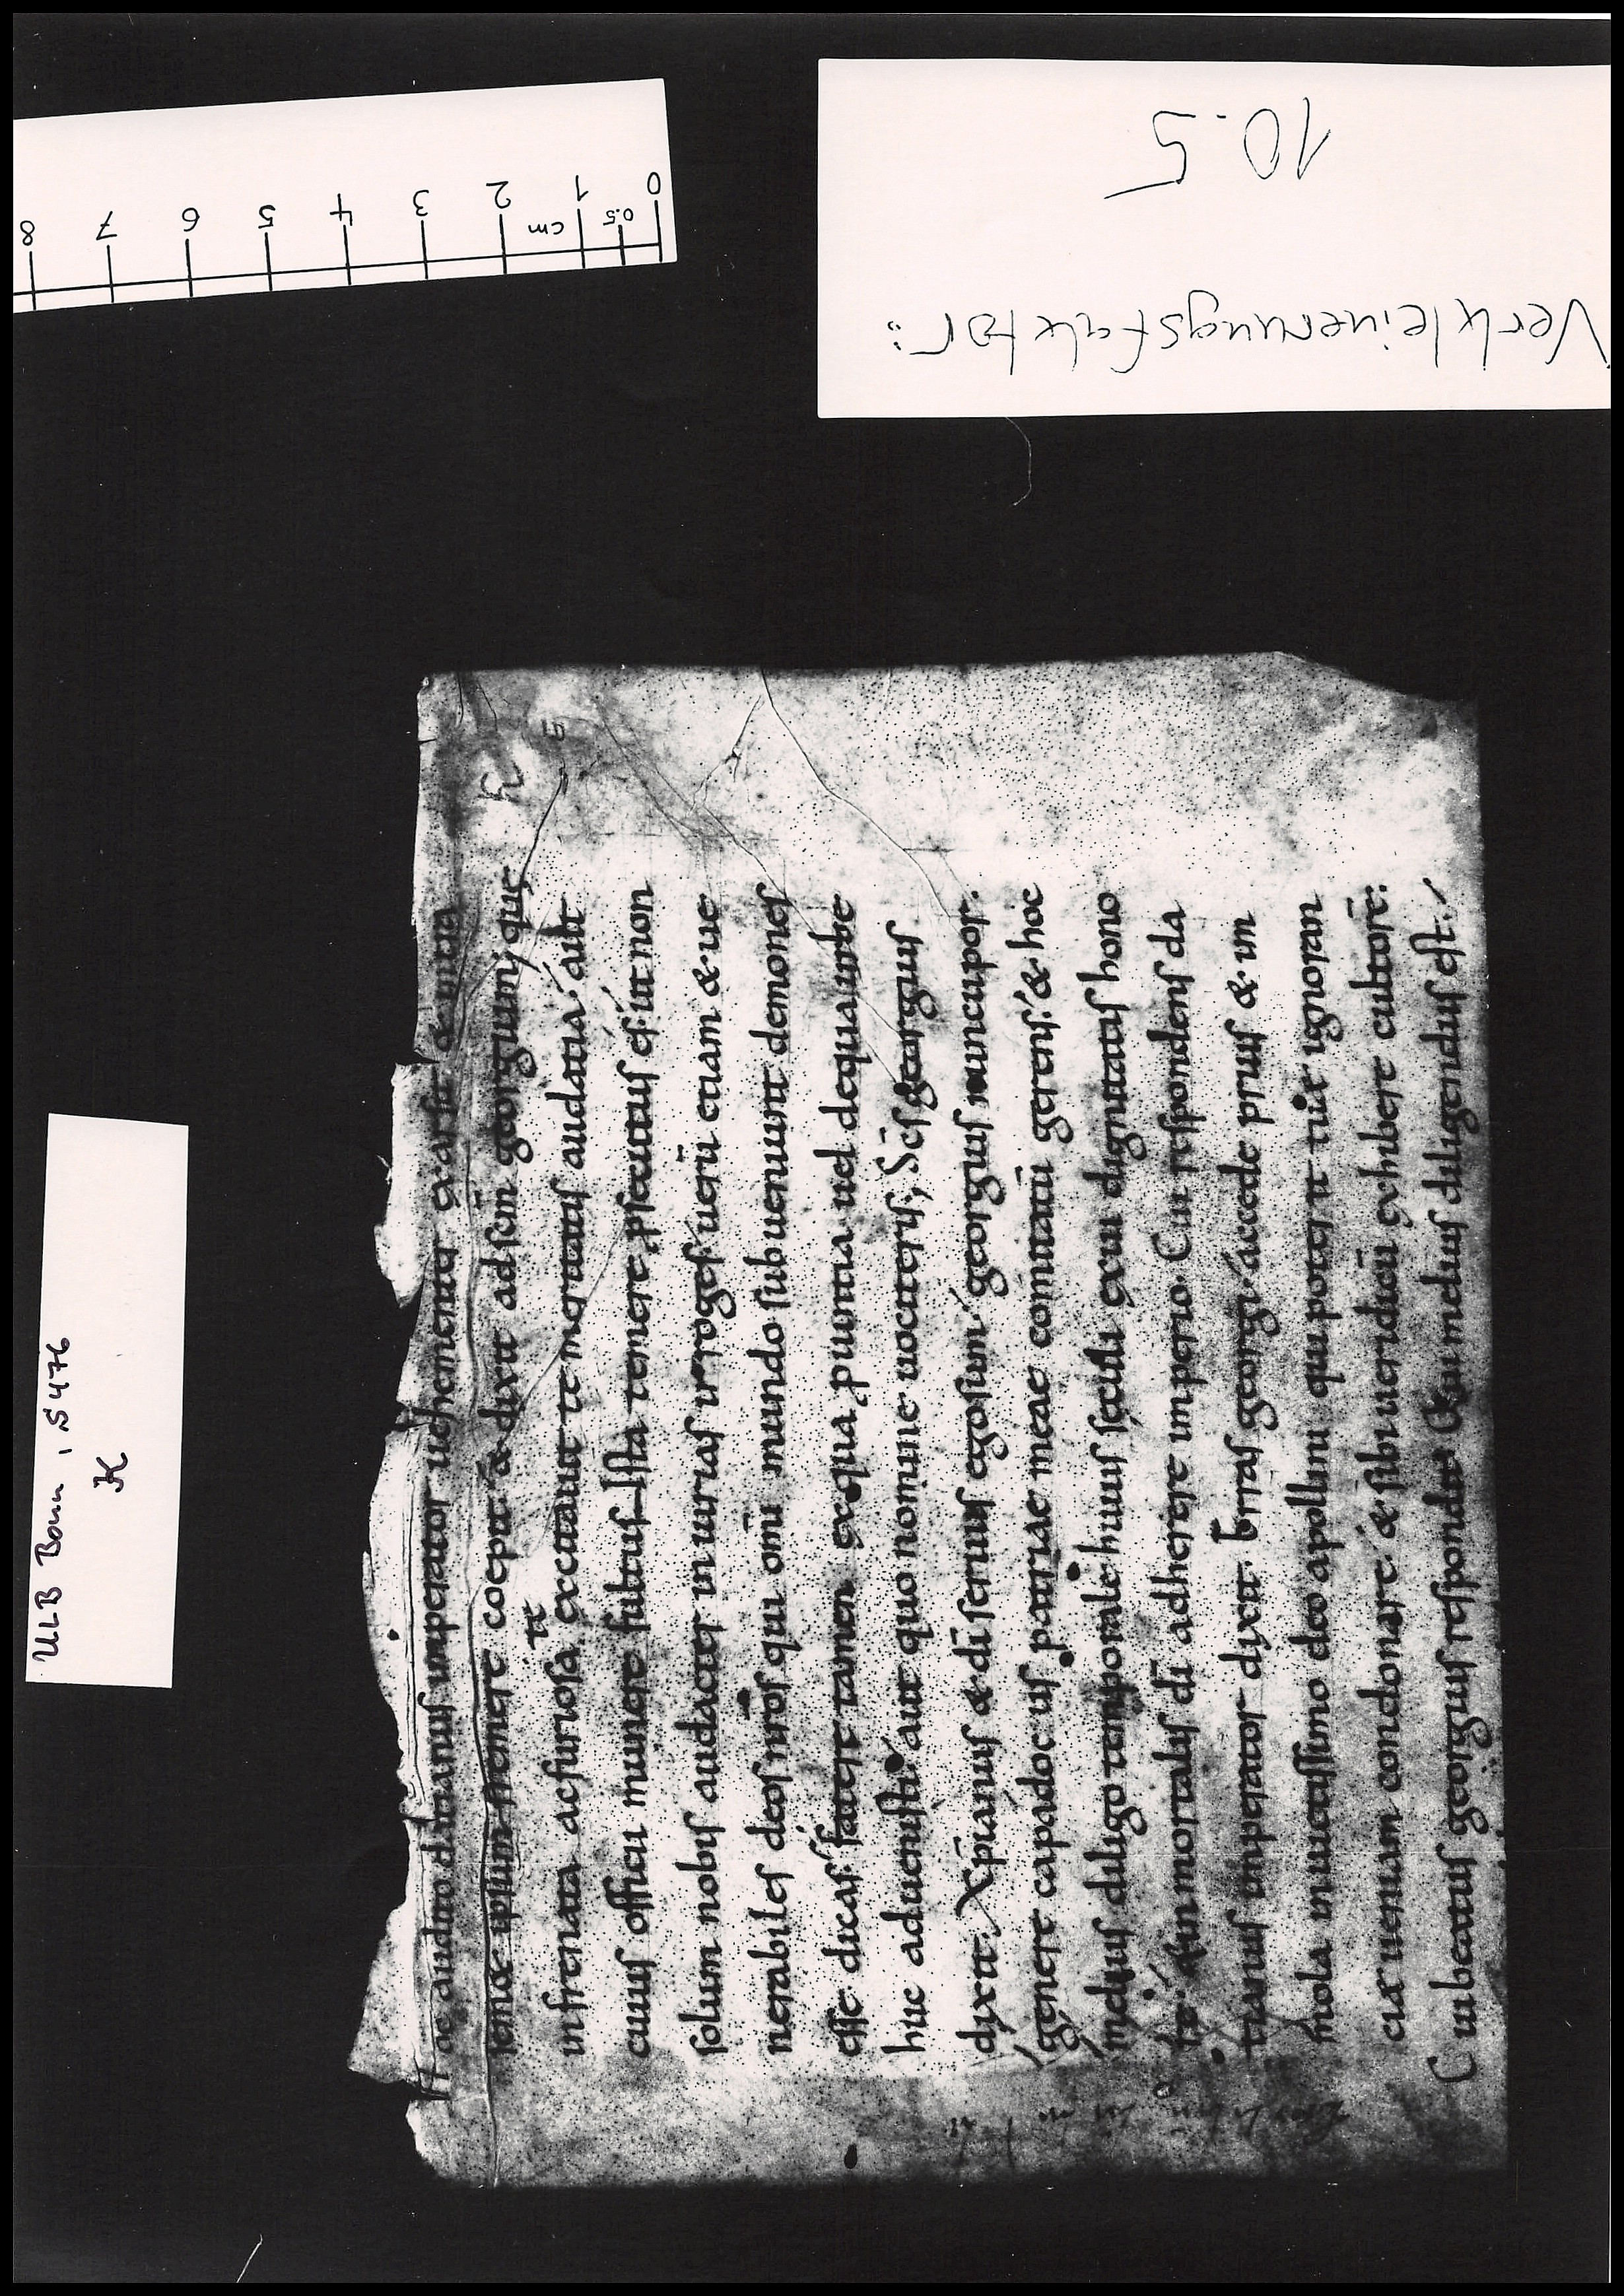 10.5
Verkleinerungsfaktor:
0 0.5 1 cm 2 3 4 5 6 7 8
ULB Bonn, S 476
K
ac audito datianus imperator uehementer exarsit
semet ipsum fremere coepit & dixit ad scm̄ georgium, quę
te
infrenata ac furiosa excitauit temeritatis audatia aut
cuius officii munere fultus ista temere psecutus es, ut non
solum nobis audacter iniurias irroges uerū etiam & ue
nerabiles deos nr̄os qui om̄i mundo subueniunt demones
esse dicas, fatere tamen ex qua puintia uel de qua urbe
huc aduenisti aut quo nomine uociteris; Sc̄s georgius
dixit. Xp̄ianus & dī seruus ego sum georgius nuncupor.
genere capadocus patriae meae comitatū gerens, & hoc
melius diligo temporale huius sęculi exui dignitatis hono
re, & inmortalis dī adherere imperio. Cui respondens da
tianus imperator dixit. Erras georgi accede prius & im
mola inuictissimo deo apollini qui poterit tuæ ignoran
ciæ ueniam condonare & sibi ueridicū exhibere cultorē:
Cui beatus georgius respondit Quis melius diligendus est.